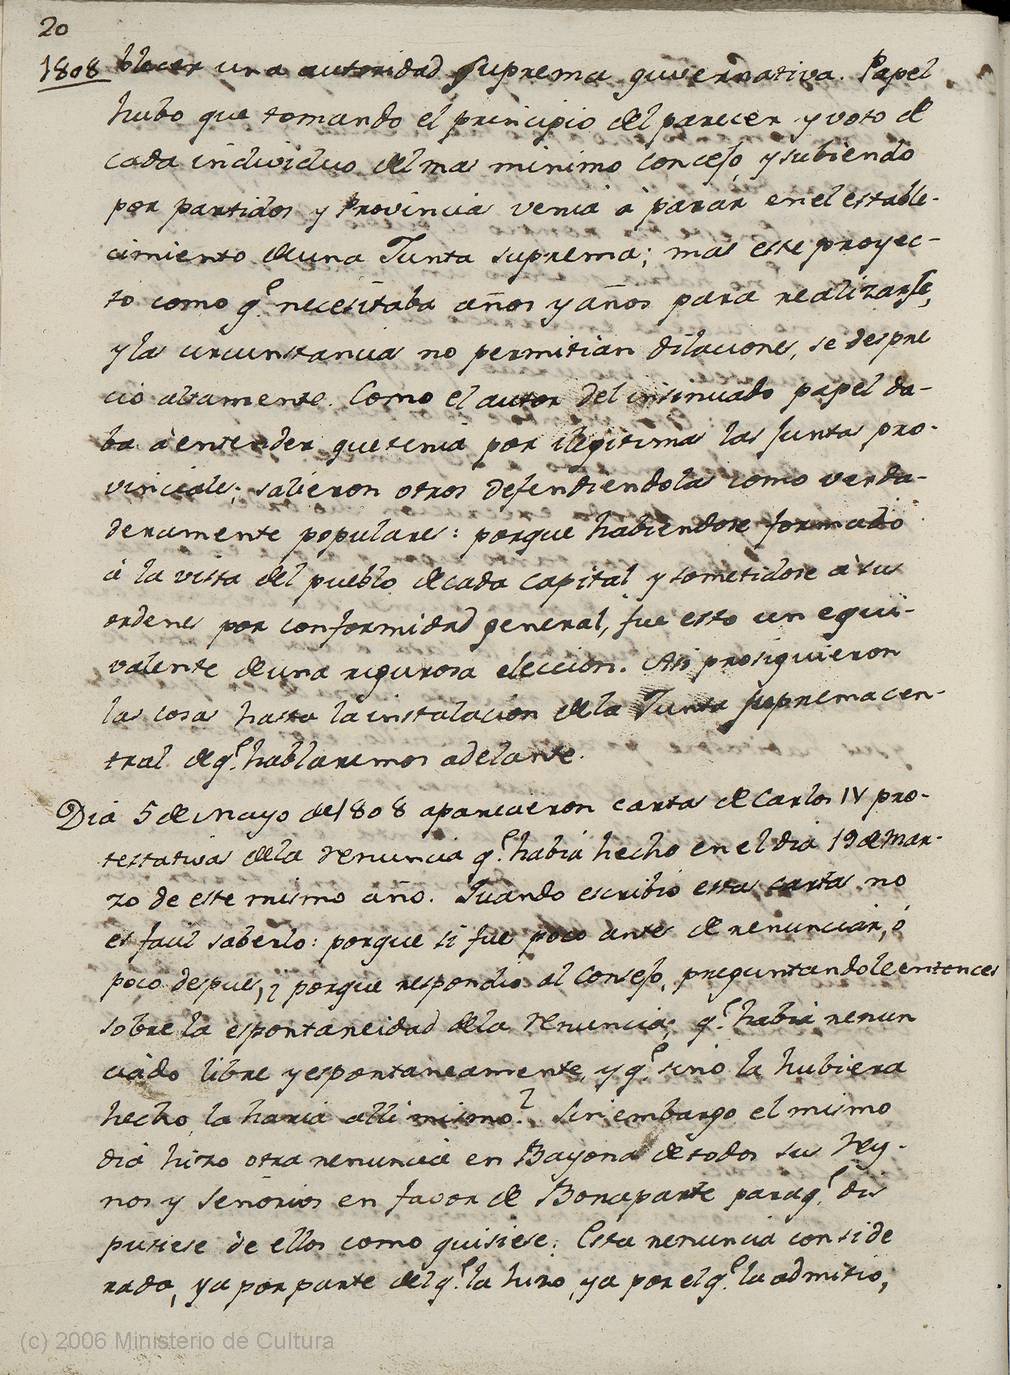 20
1808 blecer una autoridad suprema guvernativa. Papel
hubo que tomando el principio del parecer y voto de
cada individuo del mas minimo concejo, y subiendo
por partidos y Provincias venia à parar en el estable-
cimiento de una Junta suprema; mas este proyec-
to como q.e necesitaba años y años para realizarse,
y las circunstancias no permitian dilaciones, se despre
ció altamente. Como el autor del insinuado papel da-
ba à entender que tenia por ilegitimas las Juntas pro-
vinciales; salieron otros defendiendolas como verda-
deramente populares: porque habiendose formado
à la vista del pueblo de cada capital, y sometidose à sus
ordenes por conformidad general, fue esto un equi-
valente de una rigurosa eleccion. Asi prosiguieron
las cosas hasta la instalacion de la Junta suprema cen-
tral de q.e hablaremos adelante.
Dia 5 de Mayo de 1808 aparecieron cartas de Carlos IV pro-
testativas de la renuncia q.e habia hecho en el dia 19 de Mar-
zo de este mismo año. Quando escribió estas cartas no
es facil saberlo: porque si fue poco antes de renunciar, ó
poco despues, ¿porque respondio al Consejo, preguntandole entonces
sobre la espontaneidad de la renuncia, q.e habia renun
ciado libre y espontaneamente, y q.e sino la hubiera
hecho, la haria alli mismo? Sin embargo el mismo
dia hizo otra renuncia en Bayona de todos sus Rey-
nos y Señorios en favor de Bonaparte para q.e dis
pusiese de ellos como quisiese. Esta renuncia conside
rada, ya por parte del q.e la hizo, ya por el q.e la admitio,
(c) 2006 Ministerio de Cultura